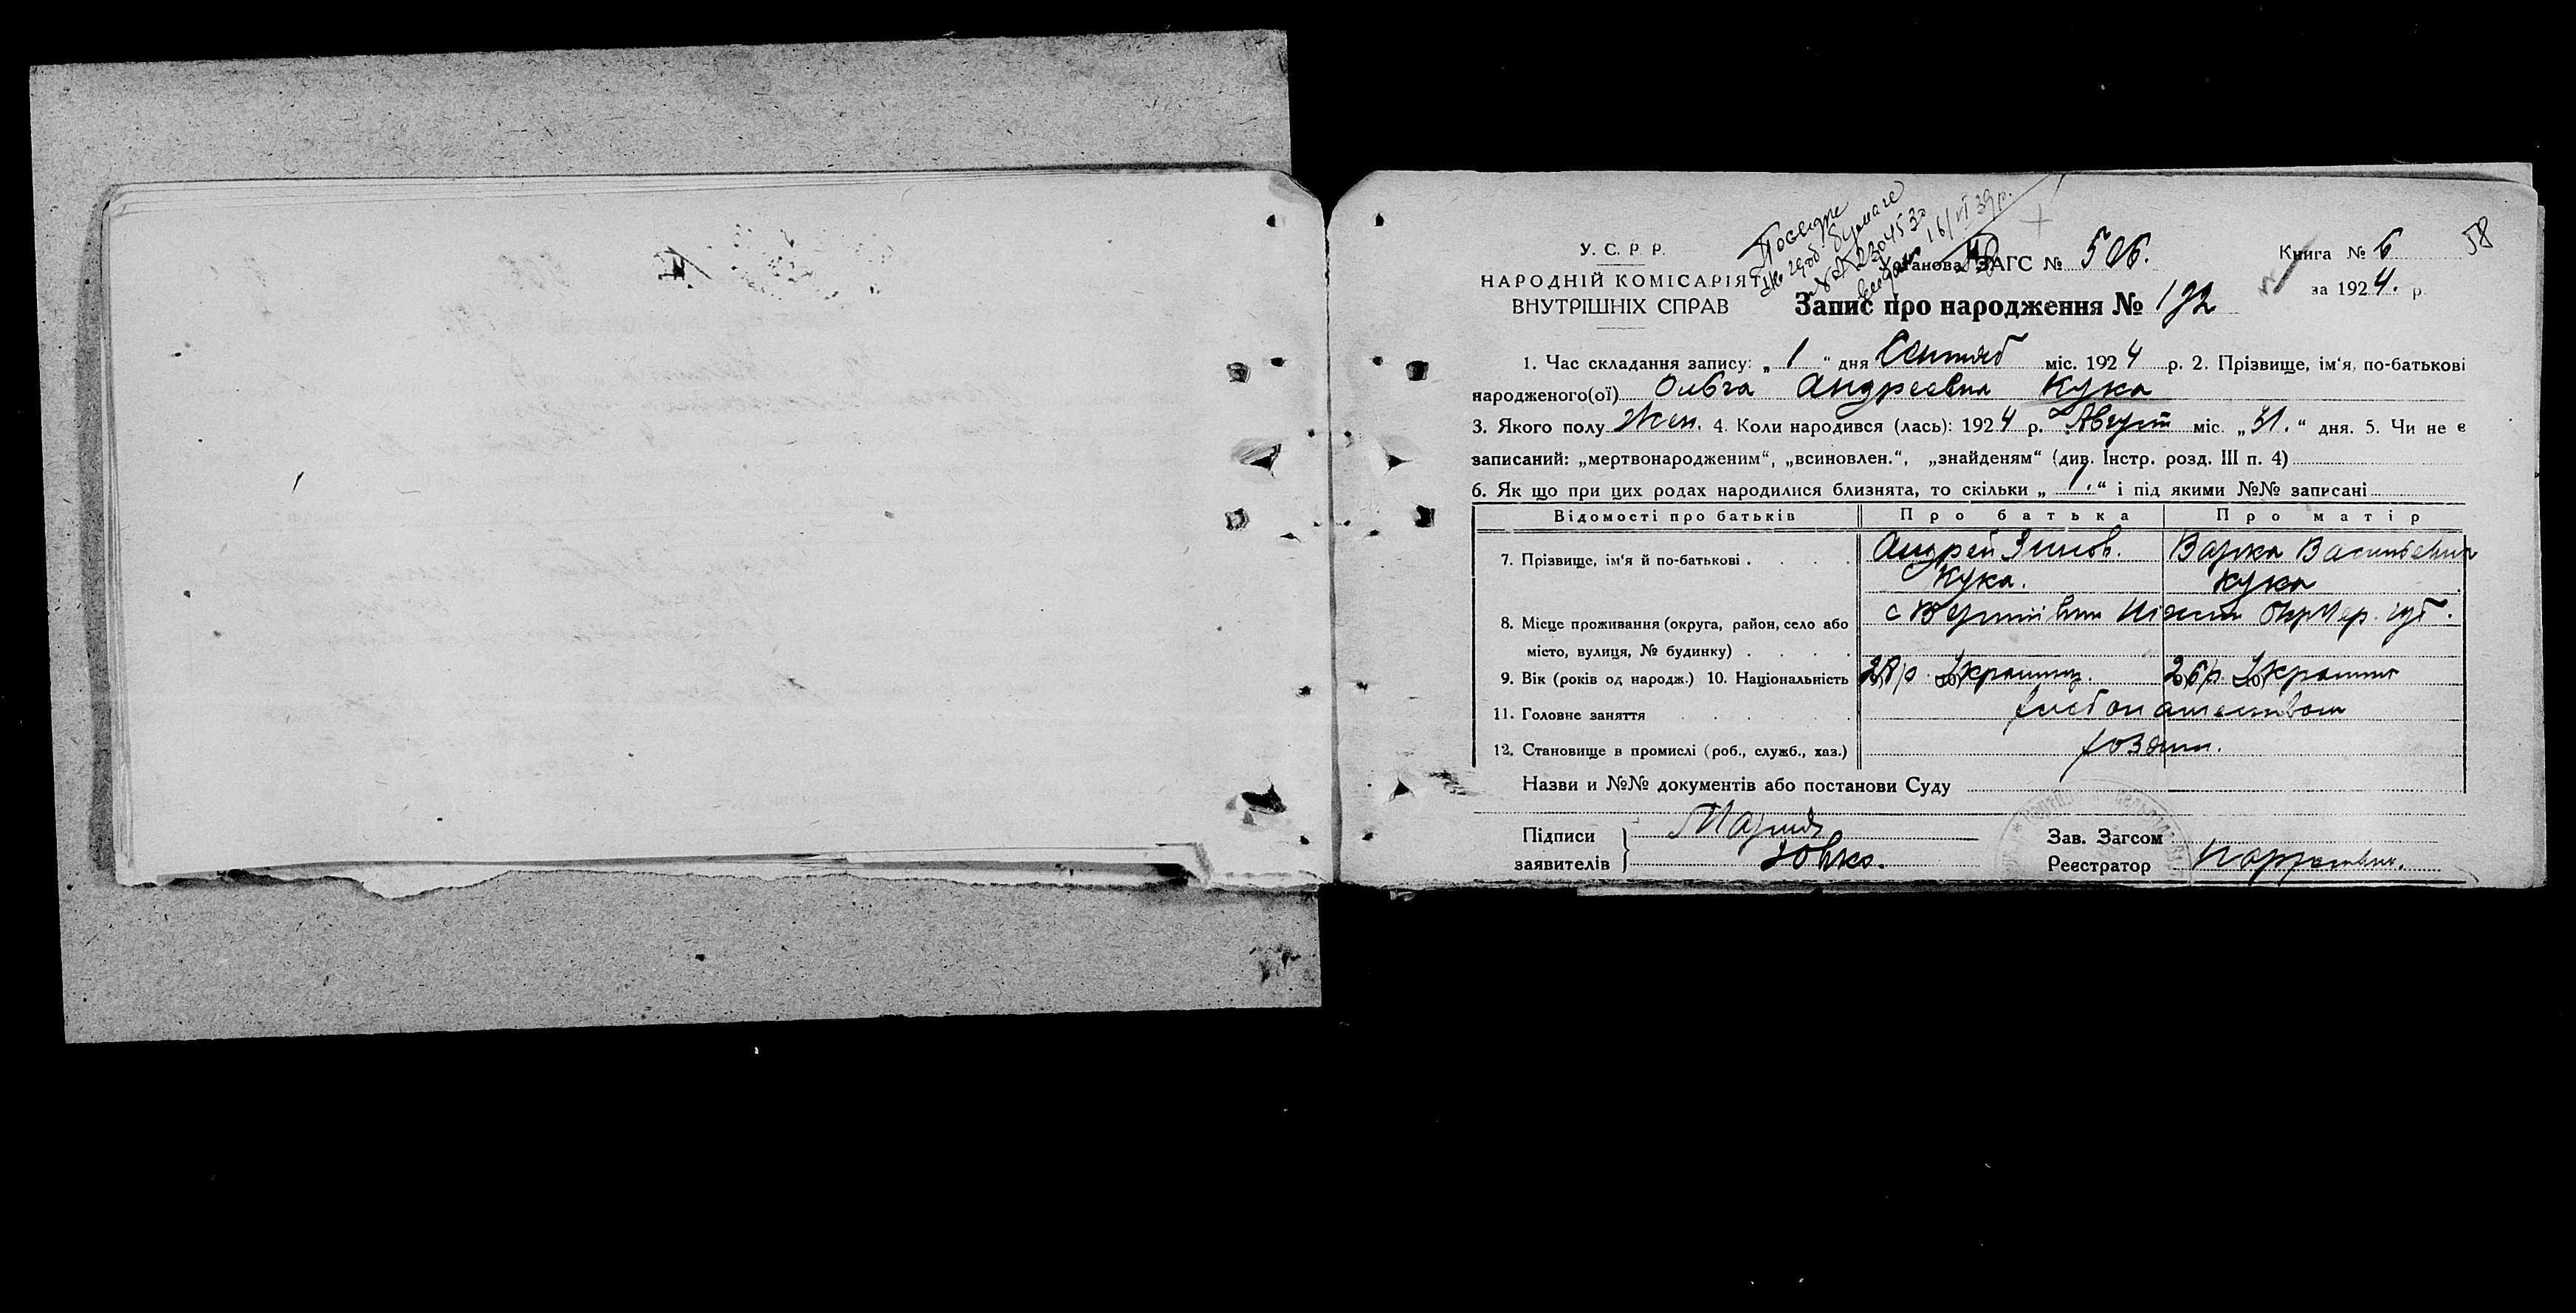 58
У. С. Р. Р.
НАРОДНІЙ КОМІСАРІЯТ
ВНУТРІШНІХ СПРАВ
16/VI 39р.
Установа ЗАГС № 506.
Книга № 6
за 1924. р.
Запис про народження № 192
1. Час складання запису: „ 1 “ дня Сентяб міс. 1924 р. 2. Прізвище, ім'я, по-батькові
народженого(ої) Ольга Андреевна Кука
3. Якого полу Жен. 4. Коли народився (лась): 1924 р. Август міс. „31.“ дня. 5. Чи не є
записаний: „мертвонародженим“, „всиновлен.“, „знайденям“ (див. Інстр. розд. III п. 4)
6. Як що при цих родах народилися близнята, то скільки „ 1. “ і під якими №№ записані
Відомості про батьків Про батька Про матір
7. Прізвище, ім'я й по-батькові . . . . Андрей Зинов. Варка Васильевна
Кука. Кука
8. Місце проживання (округа, район, село або
місто, вулиця, № будинку) . . . .
с Ніжин Окр Чер. губ.
9. Вік (років од народж.) 10. Національність 28/р. Украинц. 26/р Украинк
11. Головне заняття . . . . хлебопашеством
12. Становище в промислі (роб., служб., хаз.) хозяин.
Назви и №№ документів або постанови Суду
Підписи
заявителів
Мария
Зовко.
Зав. Загсом
Реєстратор